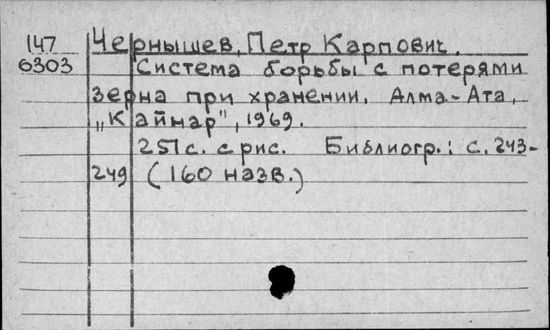 147 Чернышев, Петр Карпович.
6303 Система борьбы с потерями
зерна при хранении. Алма-Ата,
„Кайнар", 1969.
251 с. с рис. Библиогр.: с. 243-
249 (160 назв.)